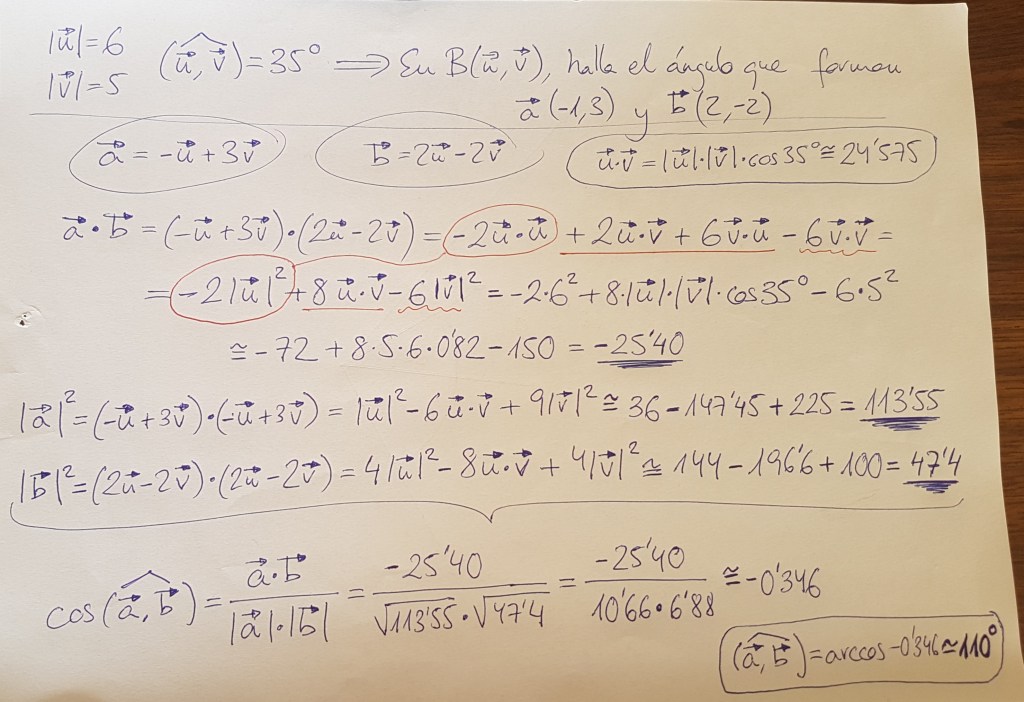 |u⃗|=6
|v⃗|=5
(u⃗,v⃗)=35° ⟹ En B(u⃗,v⃗), halla el ángulo que forman
a⃗(-1,3) y b⃗(2,-2)
a⃗ = -u⃗+3v⃗ b⃗=2u⃗-2v⃗ u⃗·v⃗=|u⃗|·|v⃗|·cos35°≅24'575
a⃗·b⃗ = (-u⃗+3v⃗)·(2u⃗-2v⃗) = -2u⃗·u⃗ + 2u⃗·v⃗ + 6v⃗·u⃗ - 6v⃗·v⃗ =
= -2|u⃗|² + 8u⃗·v⃗ - 6|v⃗|² = -2·6²+8·|u⃗|·|v⃗|·cos35° - 6·5²
≅ -72 + 8·5·6·0'82 - 150 = -25'40
|a⃗|²=(-u⃗+3v⃗)·(-u⃗+3v⃗) = |u⃗|²-6u⃗·v⃗ + 9|v⃗|² ≅ 36-147'45+225 = 113'55
|b⃗|²=(2u⃗-2v⃗)·(2u⃗-2v⃗)=4|u⃗|²-8u⃗·v⃗ + 4|v⃗|² ≅ 144-196'6+100=47'4
cos(a⃗,b⃗) = a⃗·b⃗ / |a⃗|·|b⃗| = -25'40 / √113'55·√47'4 = -25'40 / 10'66·6'88 ≅ -0'346
(a⃗,b⃗)=arccos-0'346≃110°